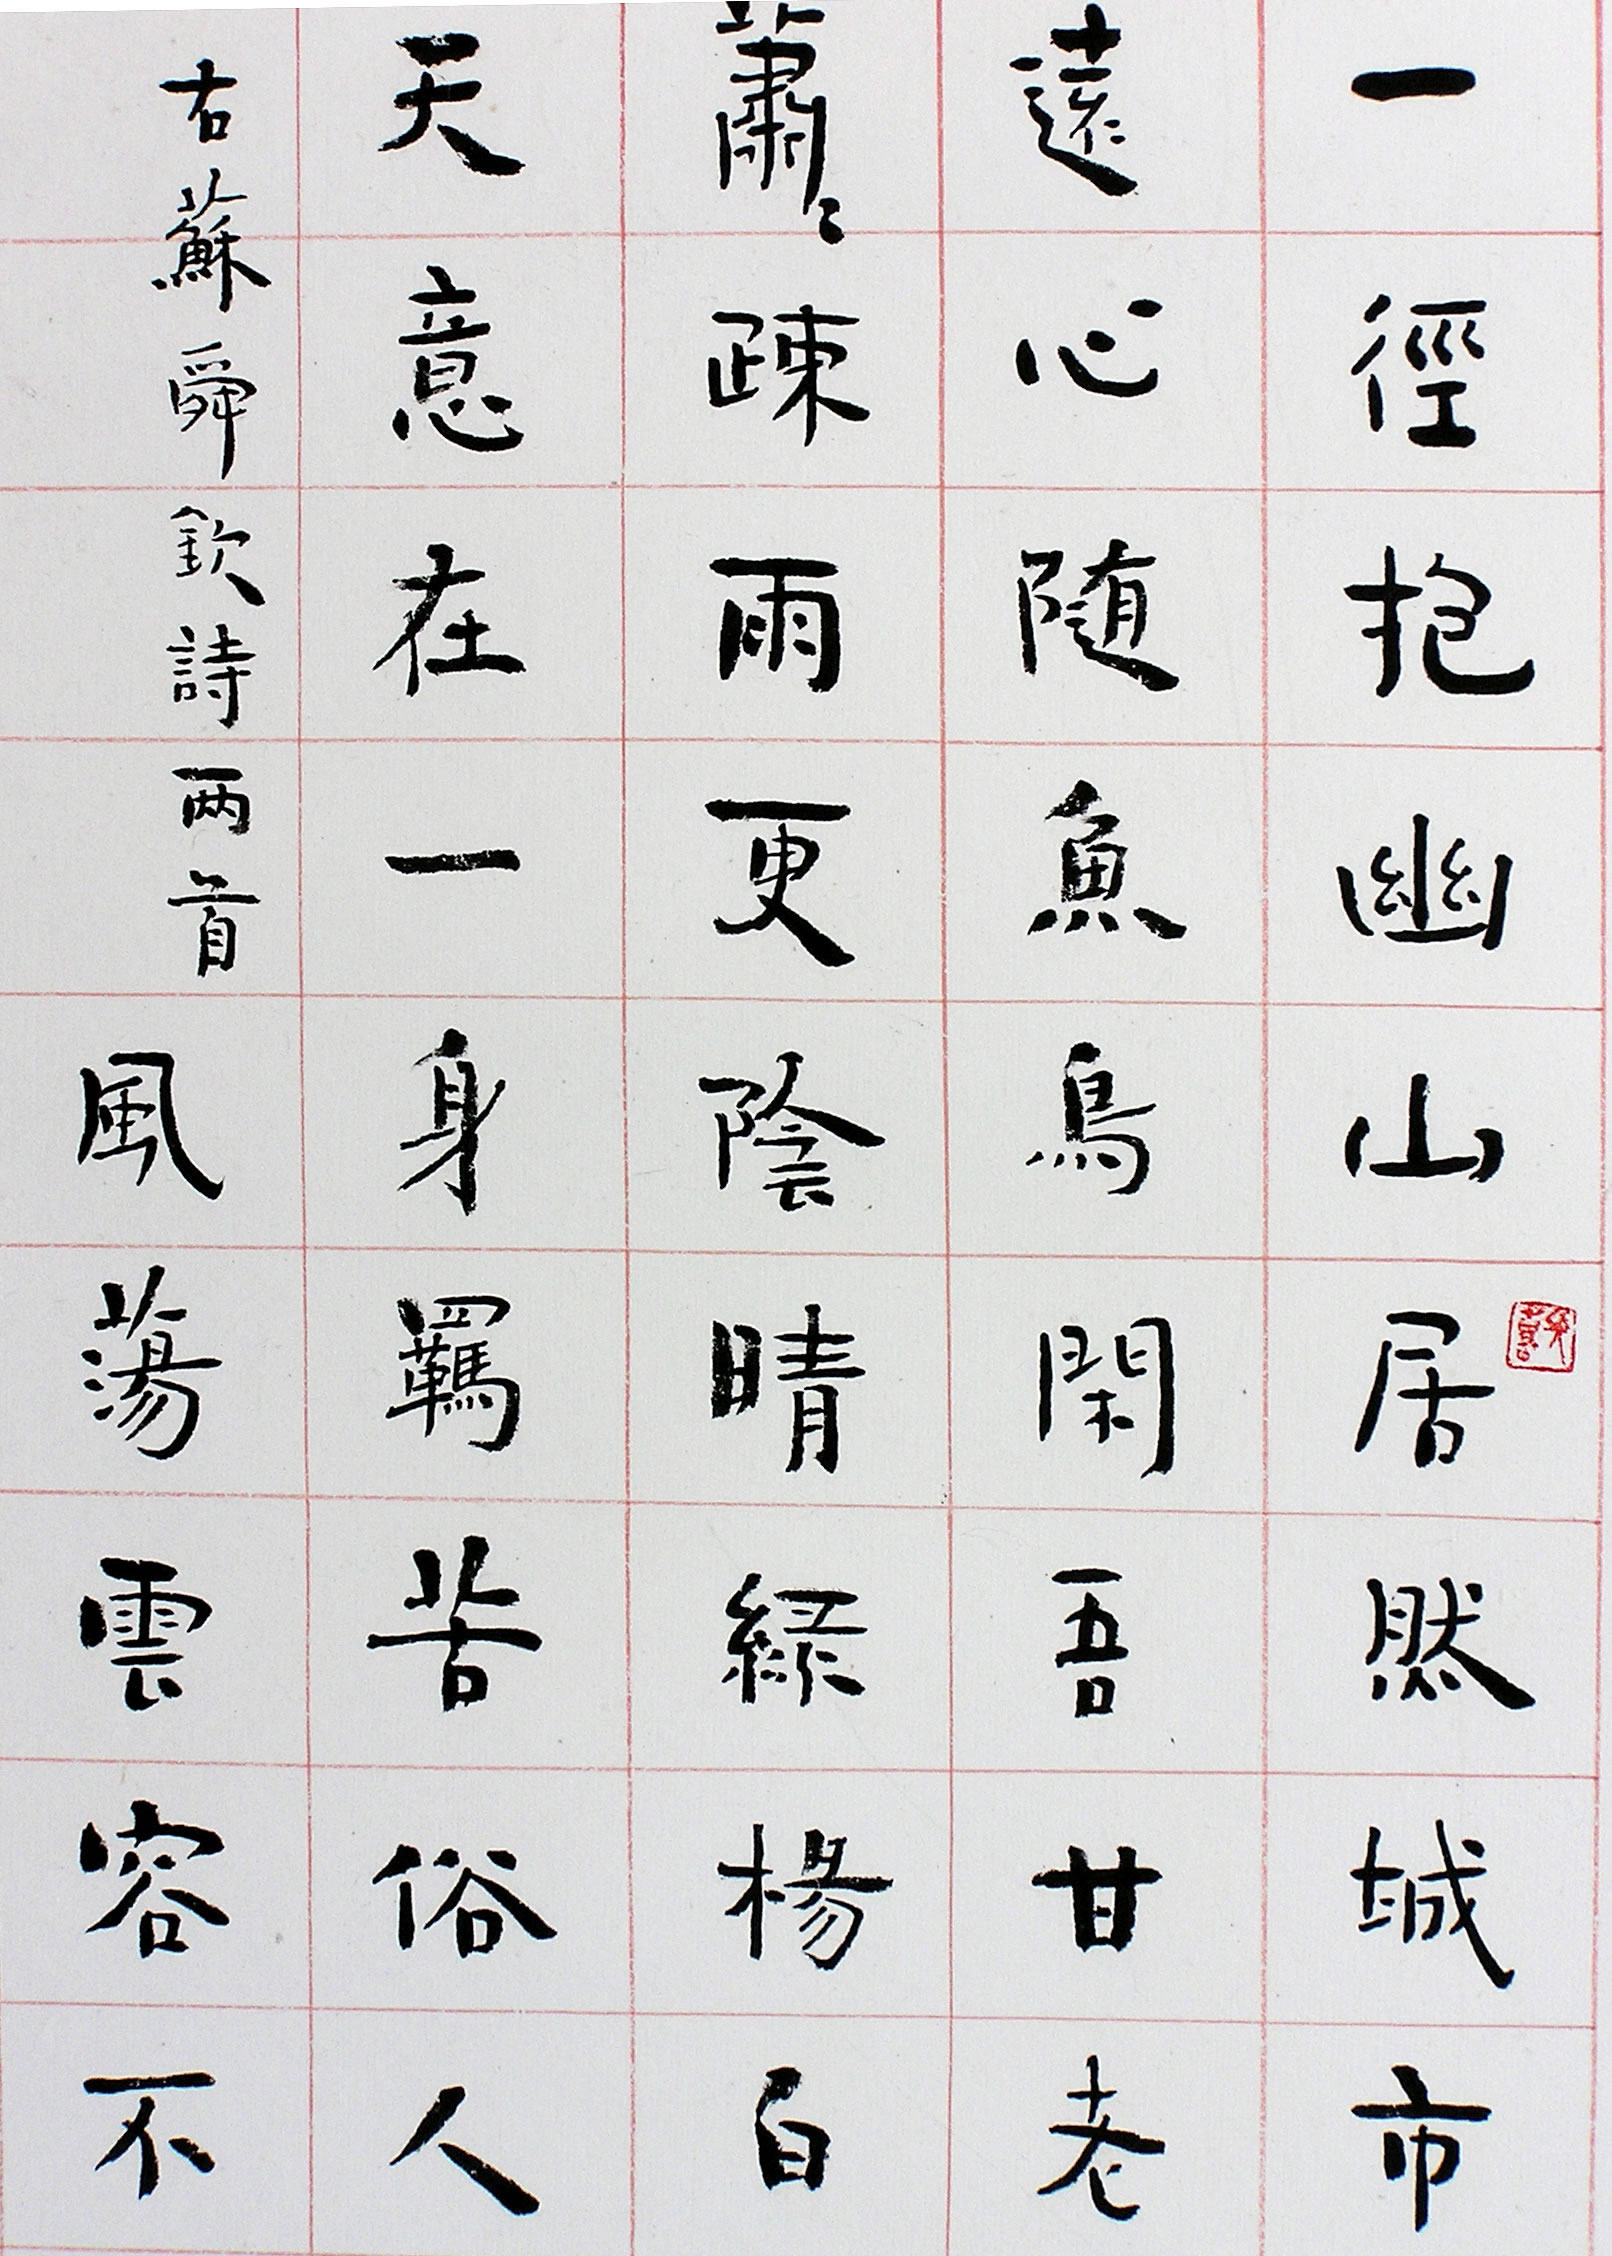 一徑抱幽山居然城市
遠心随魚鳥閑吾甘老
蕭〻疎雨更陰晴緑楊白
天意在一身羈苦俗人
風蕩雲容不
右蘇舜欽詩两首